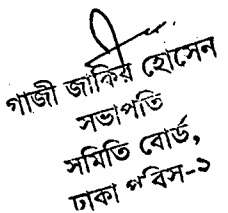 গাজী জাকির হোসেন
সভাপতি
সমিতি বোর্ড,
ঢাকা পবিস-১